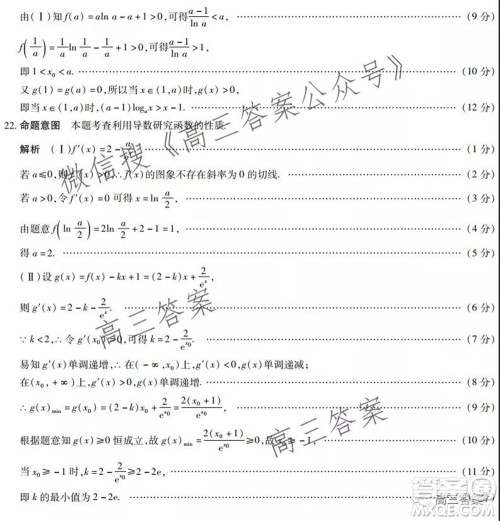 由(Ⅰ)知f(a)=aln a-a+1>0,可得(a-1)/(ln a)<a, (9分)
f(1/a)=(1/a)ln(1/a)-1/a+1>0,可得(a-1)/(ln a)>1,
即1<x₀<a. (10分)
又g(1)=g(a)=0,所以当x∈(1,a)时,g(x)>0,
即当x∈(1,a)时,(a-1)logₐx>x-1. (12分)
22. 命题意图 本题考查利用导数研究函数的性质.
解析 (Ⅰ)f′(x)=2- (1分)
若a≤0,则f′(x)>0,∴f(x)的图象不存在斜率为0的切线. (2分)
若a>0,令f′(x)=0可得x=ln(a/2), (3分)
由题意f(ln(a/2))=2ln(a/2)+2-1=1, (4分)
得a=2. (5分)
(Ⅱ)设g(x)=f(x)-kx+1=(2-k)x+2/eˣ,
则g′(x)=2-k-2/eˣ. (6分)
∵k<2,∴令g′(x₀)=0,可得k=2-2/e^(x₀). (7分)
易知g′(x)单调递增,∴在(-∞,x₀)上,g′(x)<0,g(x)单调递减;
在(x₀,+∞)上,g′(x)>0,g(x)单调递增. (8分)
∴g(x)min=g(x₀)=(2-k)x₀+2/e^(x₀)=2(x₀+1)/e^(x₀). (9分)
根据题意知g(x)≥0恒成立,故g(x)min=2(x₀+1)/e^(x₀)≥0,故x₀≥-1, (10分)
当x₀≥-1时,k=2-2/e^(x₀)≥2-2e, (11分)
即k的最小值为2-2e.
微信搜《高三答案公众号》
高三答案
高三答案
高三答案